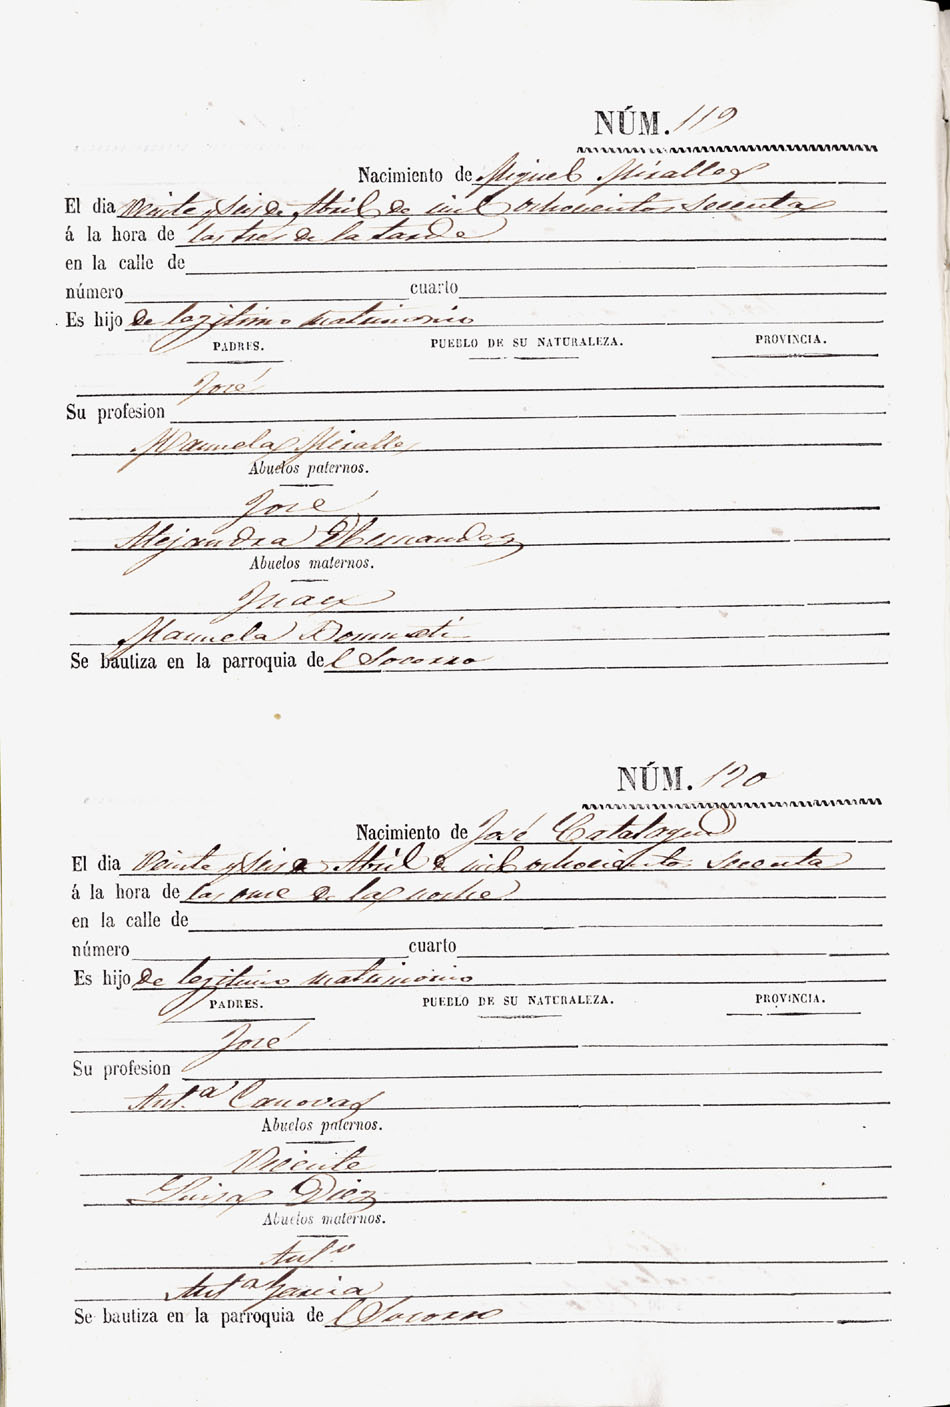 NÚM. 119
Nacimiento de Miguel Miralles
El dia veinte y seis de Abril de mil ochocientos secenta
á la hora de las tres de la tarde
en la calle de
número cuarto
Es hijo de legitimo matrimonio
PADRES. PUEBLO DE SU NATURALEZA. PROVINCIA.
José
Su profesion
Manuela Miralles
Abuelos paternos.
José
Alejandra Hernandez
Abuelos maternos.
Juan
Manuela
Se bautiza en la parroquia de l Socorro
NÚM. 120
Nacimiento de José
El dia veinte y seis de Abril de mil ochocientos secenta
á la hora de las once de la noche
en la calle de
número cuarto
Es hijo de legitimo matrimonio
PADRES. PUEBLO DE SU NATURALEZA. PROVINCIA.
José
Su profesion
Ant.a Canovas
Abuelos paternos.
Vicente
Luisa Diez
Abuelos maternos.
Ant.o
Ant.a Garcia
Se bautiza en la parroquia de l Socorro